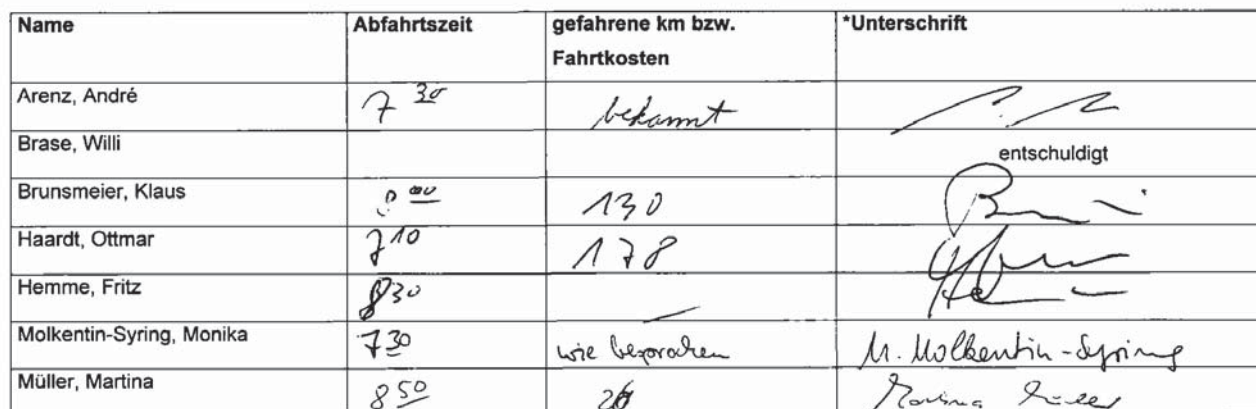 Name Abfahrtszeit gefahrene km bzw. *Unterschrift
Fahrtkosten
Arenz, André 7 30 bekannt
Brase, Willi entschuldigt
Brunsmeier, Klaus 8 00 130
Haardt, Ottmar 7 10 178
Hemme, Fritz 8 30 —
Molkentin-Syring, Monika 7 30 wie besprochen M. Molkentin-Syring
Müller, Martina 8 50 Martina Müller